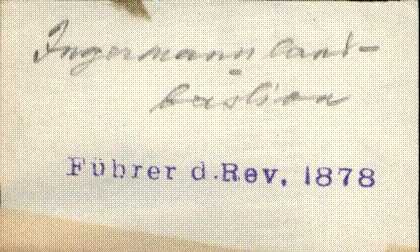 Ingermannland-
bastion
Führer d. Rev. 1878